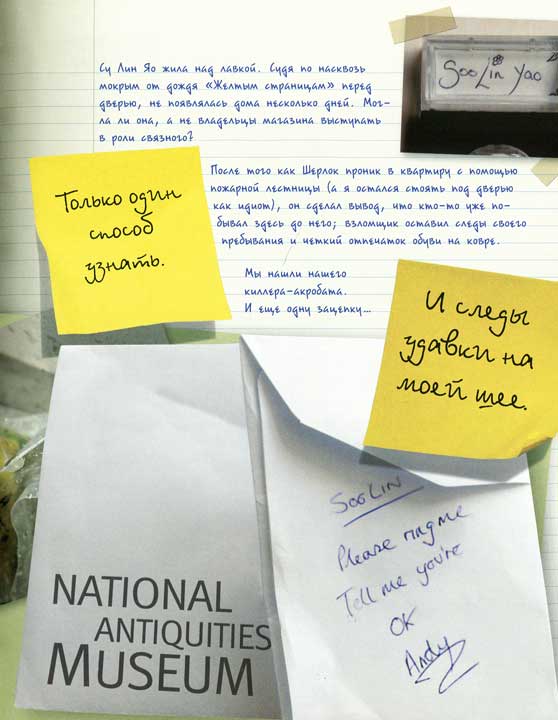 Су Лин Яо жила над лавкой. Судя по насквозь
мокрым от дождя «Желтым страницам» перед
дверью, не появлялась дома несколько дней. Мог-
ла ли она, а не владельцы магазина выступать
в роли связного?
SooLin Yao
После того как Шерлок проник в квартиру с помощью
пожарной лестницы (а я остался стоять под дверью
как идиот), он сделал вывод, что кто-то уже по-
бывал здесь до него; взломщик оставил следы своего
пребывания и четкий отпечаток обуви на ковре.
Только один
способ
узнать.
Мы нашли нашего
киллера-акробата.
И еще одну зацепку...
И следы
удавки на
моей шее.
NATIONAL
ANTIQUITIES
MUSEUM
SOO LIN
Please ring me
Tell me you're
OK
Andy